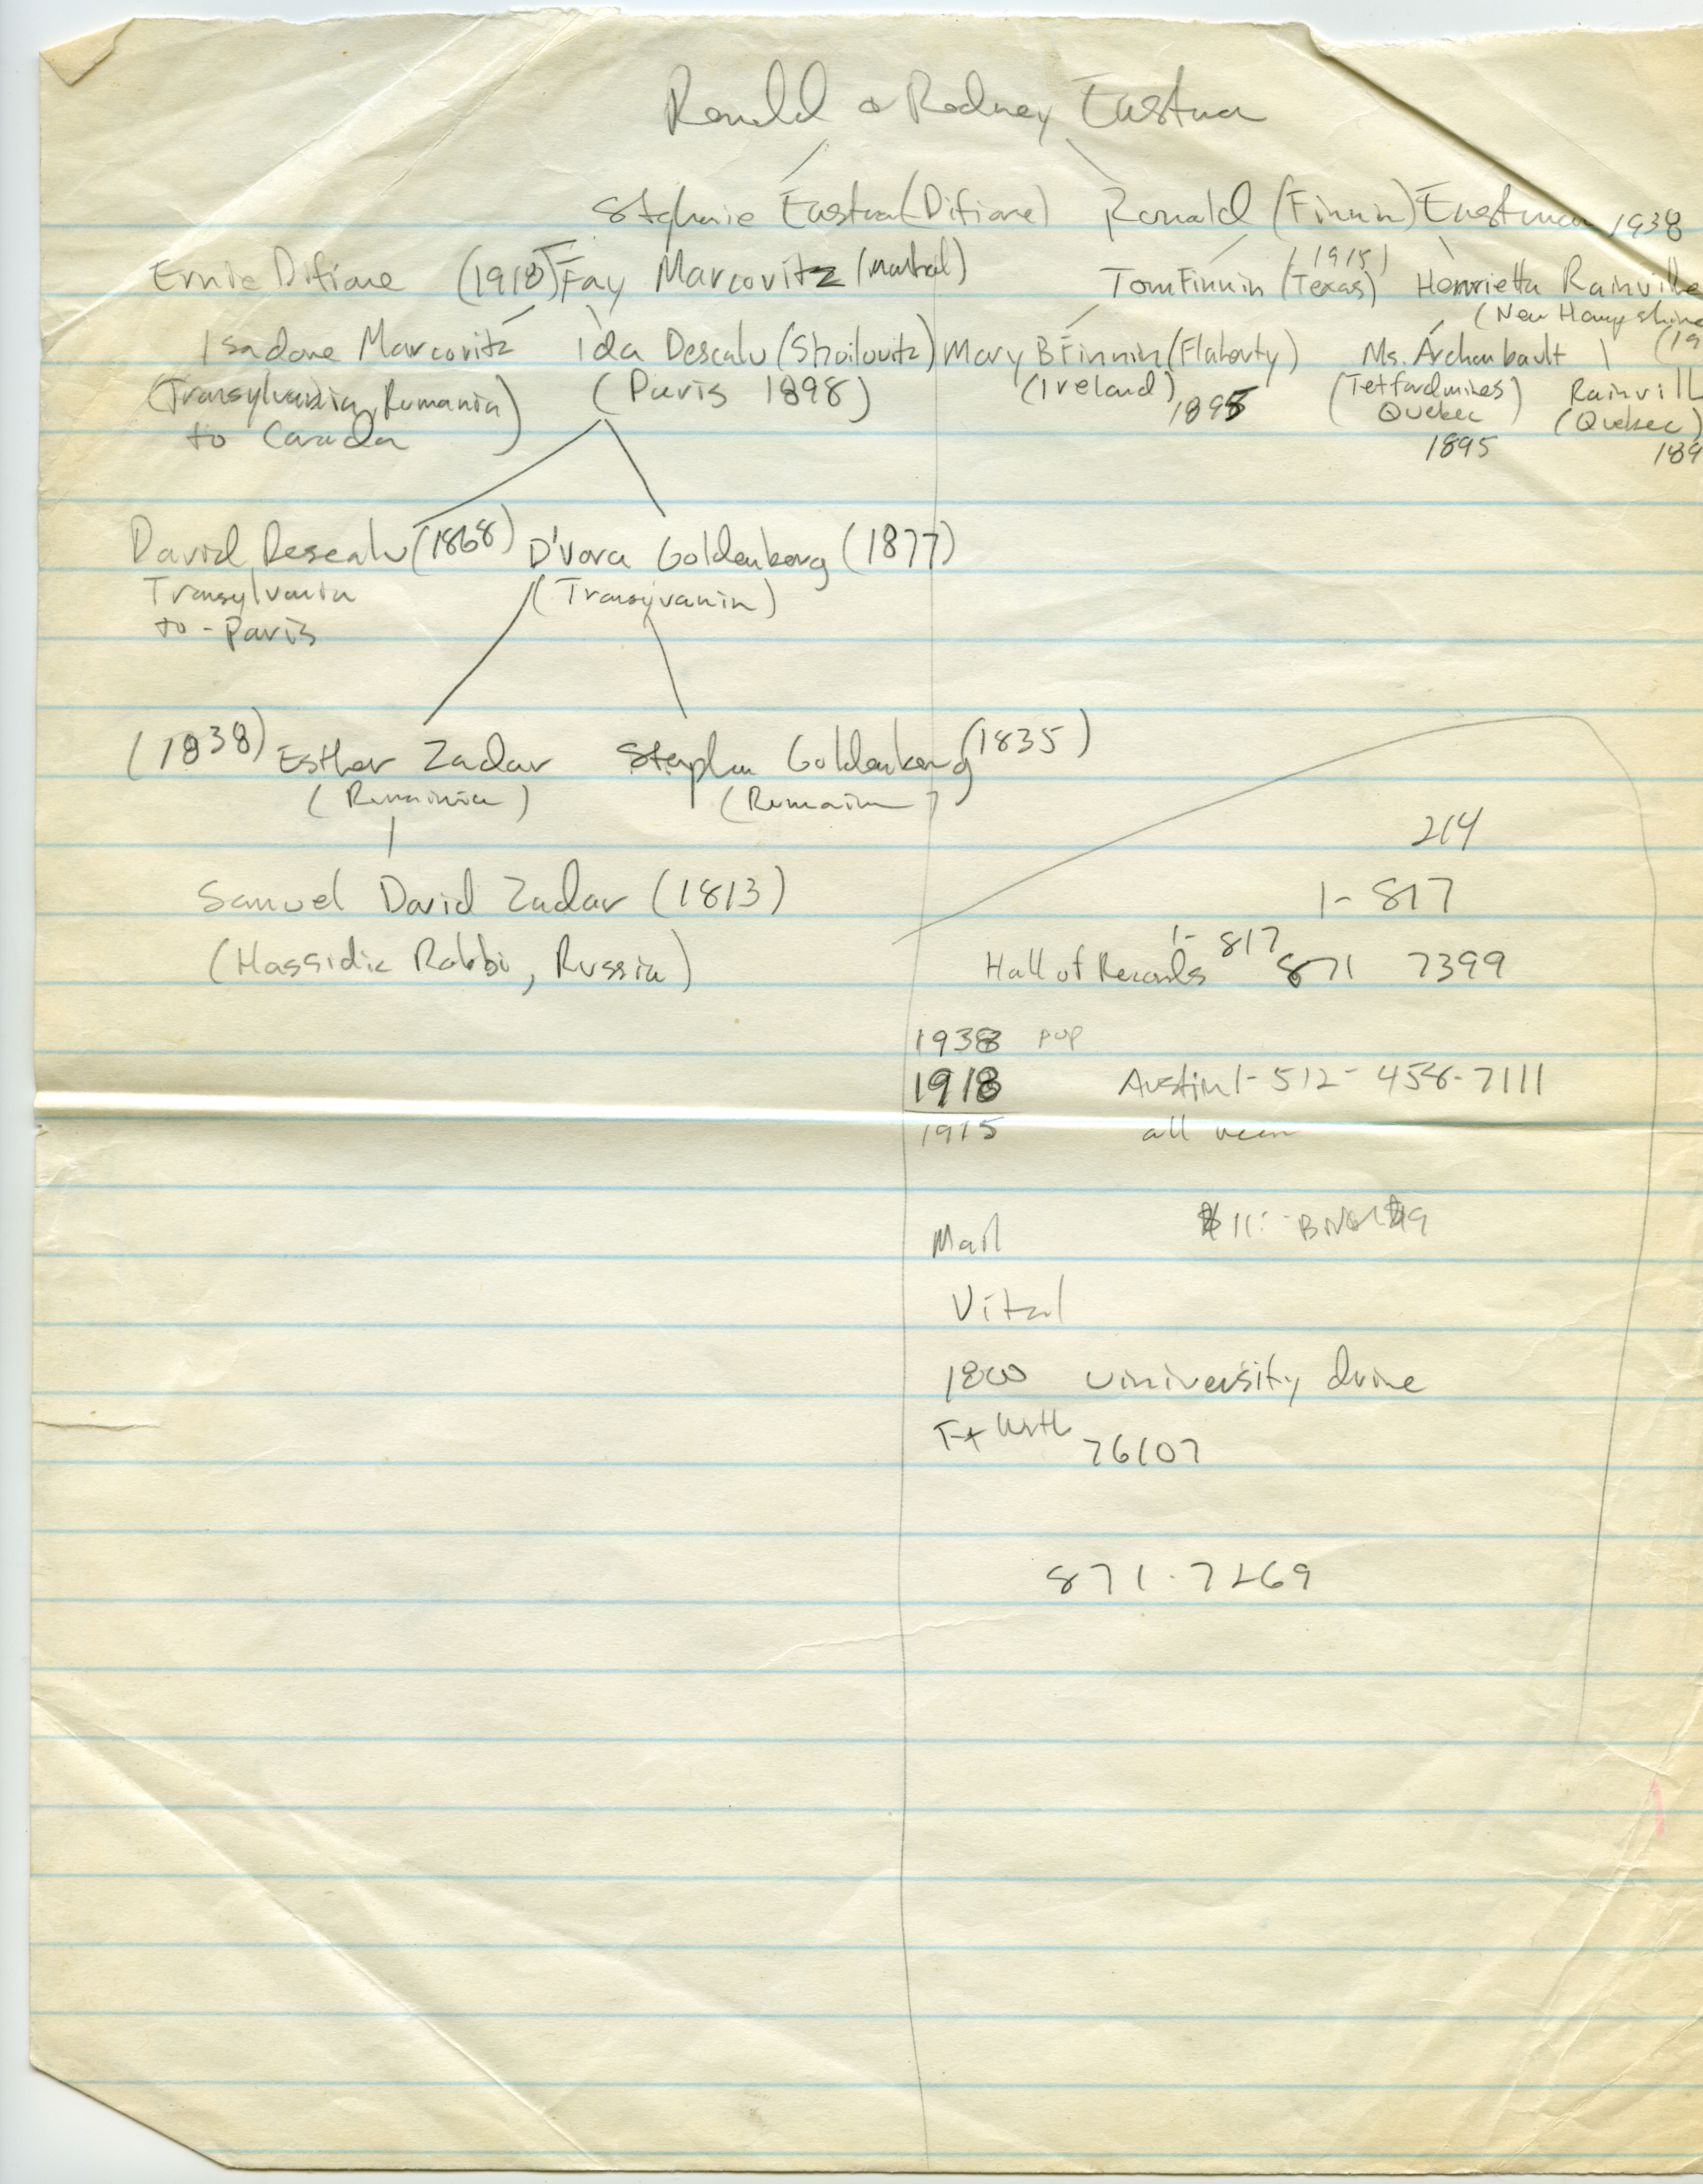 Ronald & Rodney Eastman
Stephanie Eastman (Difiore) Ronald (Finnin) Eastman 1938
Ernie Difiore (1918) Fay Marcovitz (Montreal) Tom Finnin (Texas) (1915) Henrietta Rainville
(New Hampshire
Isadore Marcovitz Ida Descalu (Shoilovitz) Mary B Finnin (Flaherty) Ms. Archambault (19
(Transylvania, Rumania) (Paris 1898) (Ireland) (Tetfordmines) Rainvill
to Canada 1895 Quebec (Quebec)
1895 189
David Descalu (1868) D'vora Goldenberg (1877)
Transylvania (Transyvania)
to - Paris
(1838) Esther Zadar Stephen Goldenberg (1835)
(Rumainia) (Rumain
214
Samuel David Zadar (1813) 1- 817
(Hassidic Rabbi, Russia) Hall of Records 1- 817 871 7399
1938 pop
1918 Austin 1-512-458-7111
1915 all
Mail $11
Vital
1800 University drive
Ft Wrth 76107
871-7269